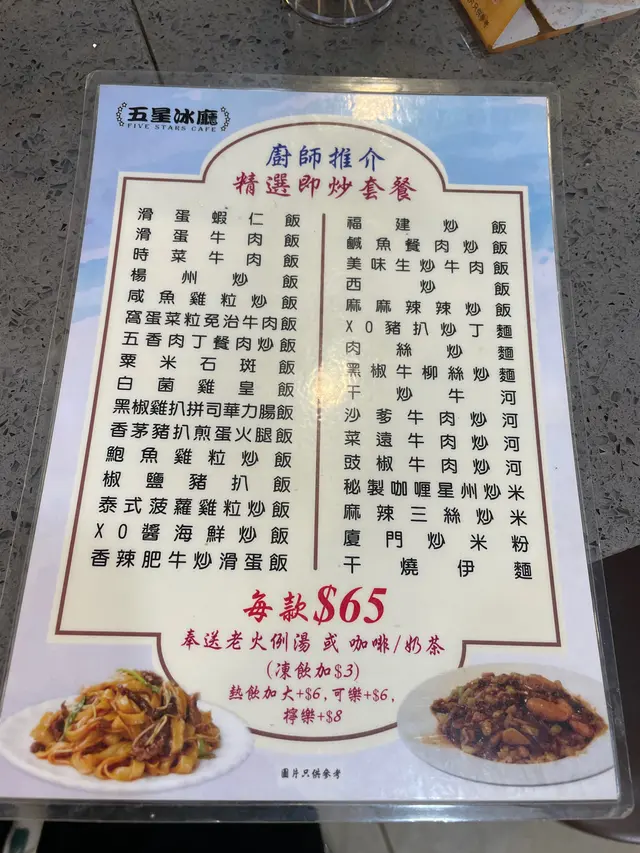 五星冰廳
FIVE STARS CAFE
廚師推介
精選即炒套餐
滑蛋蝦仁飯
滑蛋牛肉飯
時菜牛肉飯
楊州炒飯
咸魚雞粒炒飯
窩蛋菜粒免治牛肉飯
五香肉丁餐肉炒飯
粟米石斑飯
白菌雞皇飯
黑椒雞扒拼司華力腸飯
香茅豬扒煎蛋火腿飯
鮑魚雞粒炒飯
椒鹽豬扒飯
泰式菠蘿雞粒炒飯
XO醬海鮮炒飯
香辣肥牛炒滑蛋飯
福建炒飯
鹹魚餐肉炒飯
美味生炒牛肉飯
西炒飯
麻麻辣辣炒飯
XO豬扒炒丁麵
肉絲炒麵
黑椒牛柳絲炒麵
干炒牛河
沙爹牛肉炒河
菜遠牛肉炒河
豉椒牛肉炒河
秘製咖喱星州炒米
麻辣三絲炒米
廈門炒米粉
干燒伊麵
每款$65
奉送老火例湯 或 咖啡/奶茶
(凍飲加$3)
熱飲加大+$6, 可樂+$6,
檸樂+$8
圖片只供參考